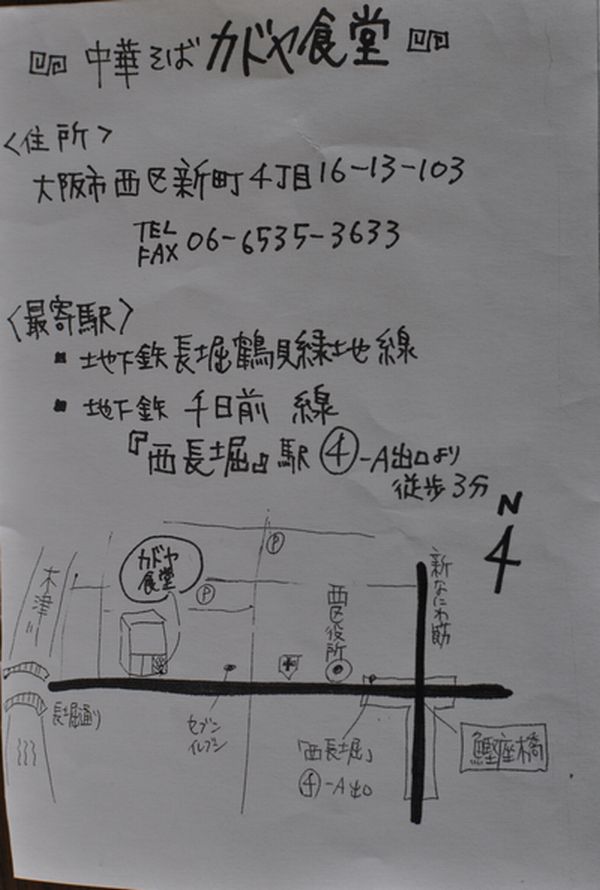 中華そば カドヤ食堂
〈住所〉
大阪市西区新町4丁目16-13-103
TEL
FAX 06-6535-3633
〈最寄駅〉
▪ 地下鉄長堀鶴見緑地線
▪ 地下鉄 千日前 線
『西長堀』駅 ④-A出口より
徒歩3分
N
カドヤ
食堂
P
P
木津川
新なにわ筋
西区役所
長堀通り
セブン
イレブン
「西長堀」
④-A出口
鰹座橋